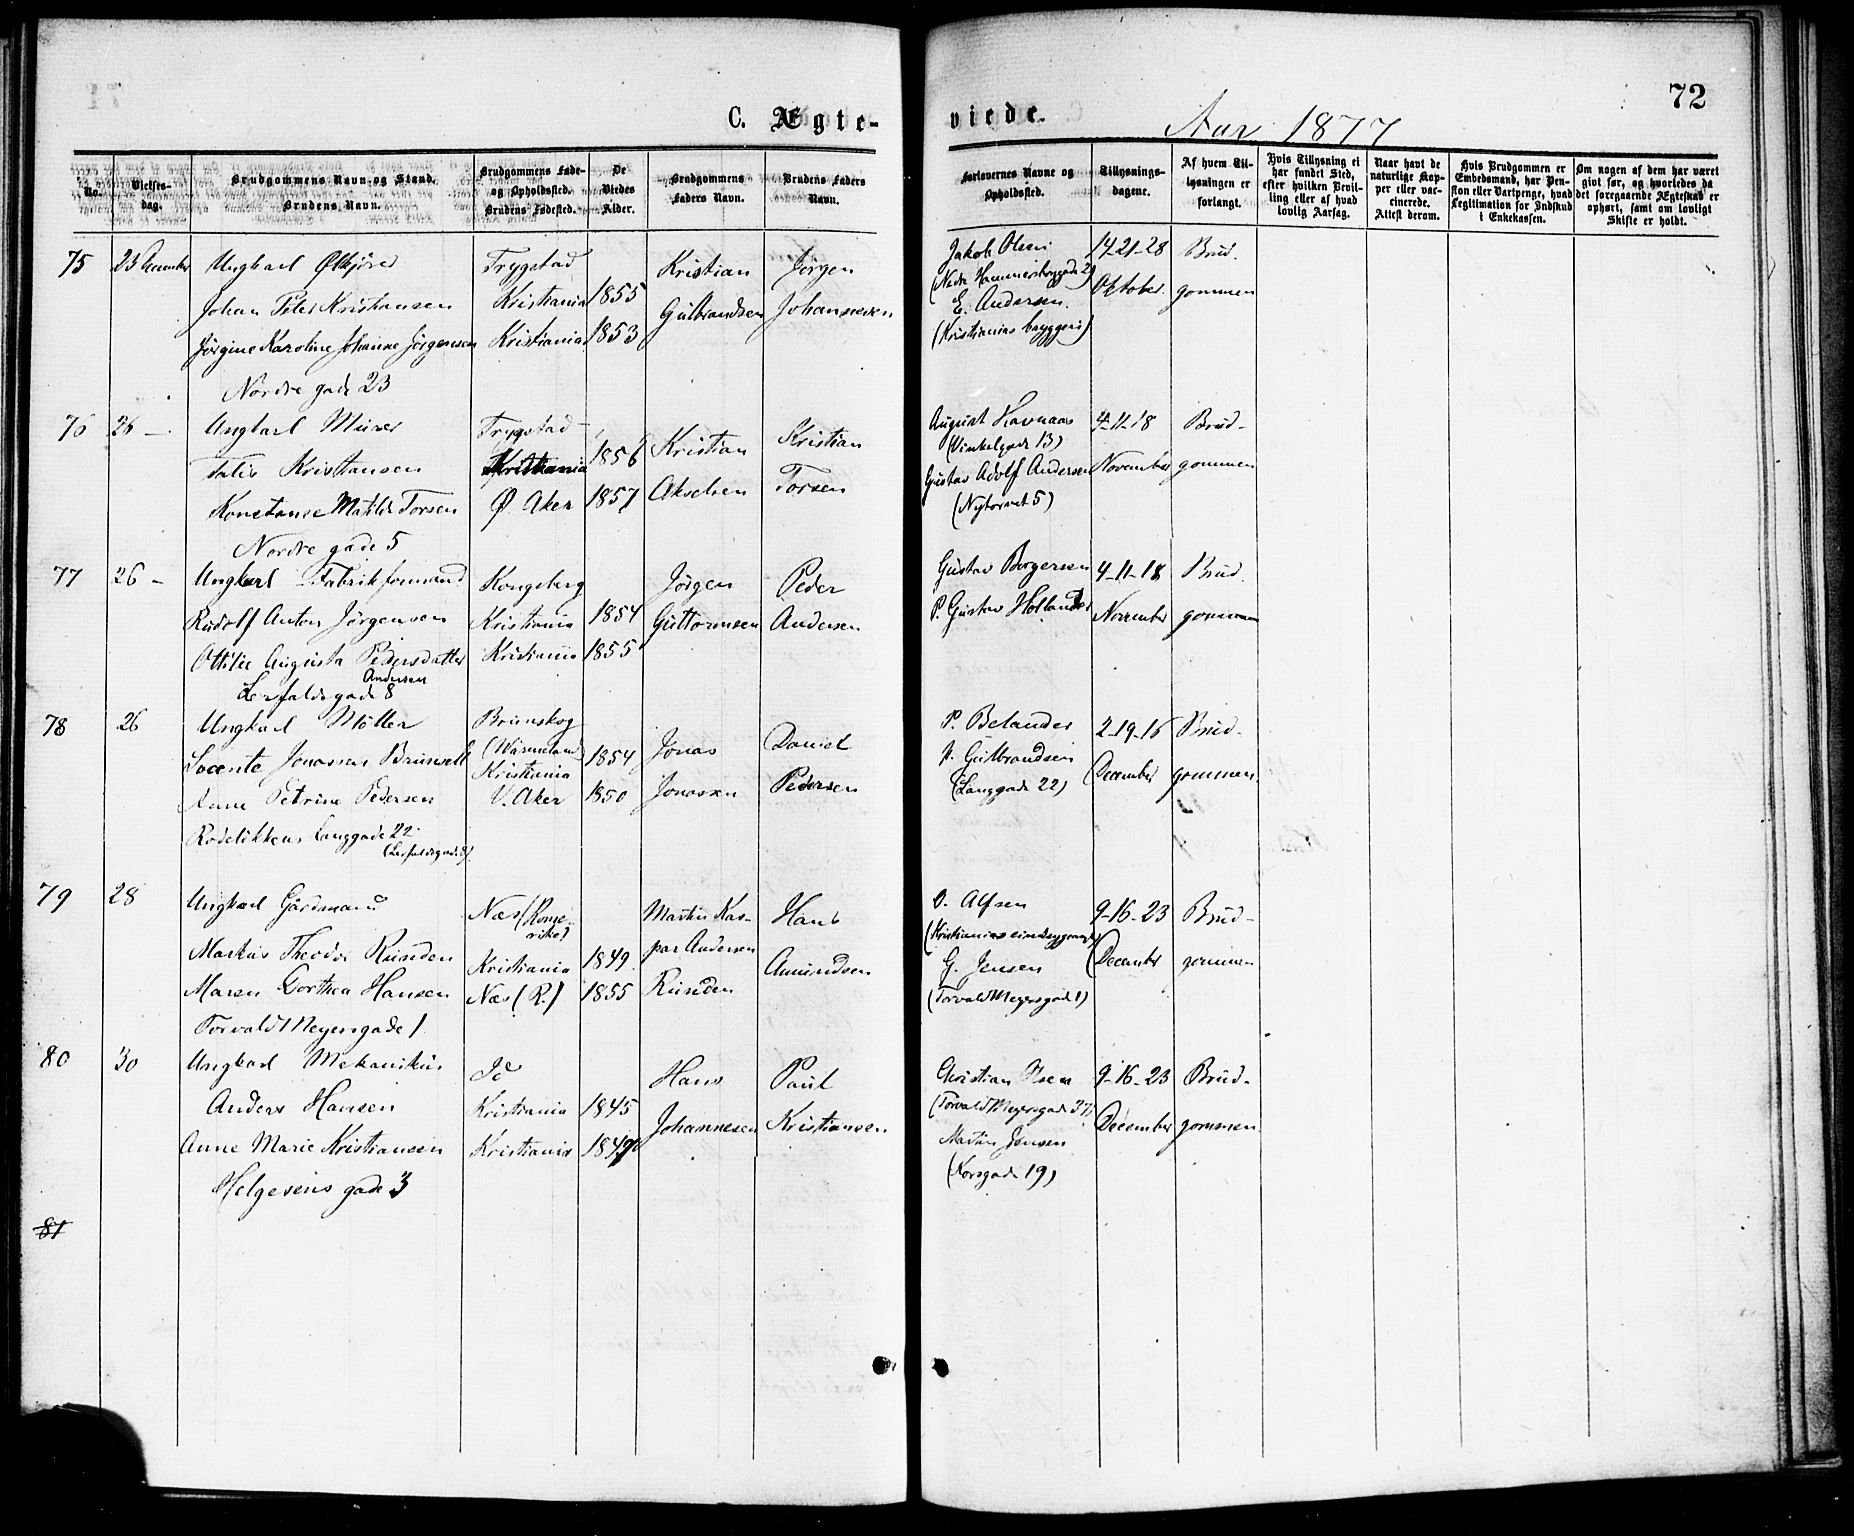 72
C. Ægte-
viede.
Aar 1877
No.
Vielses-
dag.
Brudgommens Navn og Stand.
Brudens Navn.
Brudgommens Føde-
og Opholdssted.
Brudens Fødested.
De
Viedes
Alder.
Brudgommens
Faders Navn.
Brudens Faders
Navn.
Forlovernes Navne og
Opholdssted.
Tillysnings-
dagene.
Af hvem Til-
lysningen er
forlangt.
Hvis Tillysning ei
har fundet Sted,
efter hvilken Bevil-
ling eller af hvad
lovlig Aarsag.
Naar havt de
naturlige Kop-
per eller vac-
cinerede.
Attest derom.
Hvis Brudgommen er
Embedsmand, har Pen-
sion eller Vartpenge, hvad
Legitimation for Indskud
i Enkekassen.
Om nogen af dem har været
gift før, og hvorledes da
det foregaaende Ægteskab er
ophørt, samt om lovligt
Skifte er holdt.
75
23 December
Ungkarl Ølkjører
Johan Peter Kristiansen
Jørgine Karoline Johanne Jørgensen
Nordre gade 23
Trygstad
Kristiania
Kristiania
1855
1853
Kristian
Gulbrandsen
Jørgen
Johannesen
Jakob Olsen
E. Andersen
(Kristianias bryggeri)
14-21-28
Oktober
Brud-
gommen
76
26 —
Ungkarl Murer
Kristiansen
Konstanse Matilde Torsen
Nordre gade 5
Trygstad
Kristiania
Ø. Aker
1856
1857
Kristian
Akselsen
Kristian
Torsen
August Havnaas
(Vinkelgade 13)
Gustav Adolf Andersen
(Nytorvet 5)
4-11-18
November
Brud-
gommen
77
26 —
Ungkarl Fabrikformand
Rudolf Anton Jørgensen
Ottilie Augusta Pedersdatter
Andersen
Lerfaldsgade 8
Kongsberg
Kristiania
Kristiania
1854
1855
Jørgen
Guttormsen
Peder
Andersen
Gustav Borgersen
P. Gustav Hollander
4-11-18
November
Brud-
gommen
78
26
Ungkarl Møller
Jonassen
Anne Petrine Pedersen
Langgade 22
(Lerfaldsgade 8)
Brunskog
(Wärmeland)
Kristiania
V. Aker
1854
1850
Jonas
Jonassen
Daniel
Pedersen
P. Belander
Gulbrandsen
(Langgade 22)
2-19-16
December
Brud-
gommen
79
28
Ungkarl Gårdmand
Markus Theodor Runden
Maren Dorthea Hansen
Torvald Meyersgade 1
Næs (Rome-
rike)
Kristiania
Næs (R.)
1849
1855
Martin Kas-
par Andersen
Runden
Hans
Amundsen
O. Alfsen
G. Jensen
(Torvald Meyersgade 1)
9-16-23
December
Brud-
gommen
80
30
Ungkarl Mekanikus
Anders Hansen
Anne Marie Kristiansen
Helgesens gade 3
Id
Kristiania
Kristiania
1845
1849
Hans
Johannesen
Paul
Kristiansen
Christian Olsen
(Torvald Meyersgade 37)
Martin Jensen
(Korsgade 19)
9-16-23
December
Brud-
gommen
81